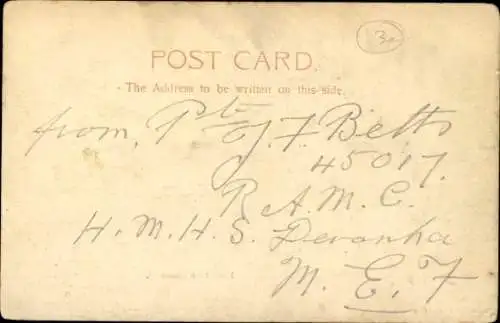 3.
POST CARD.
The Address to be written on this side.
from, Pte J. F. Betts
45017.
R. A. M. C.
H. M. H. S. Devanha
M. E. F